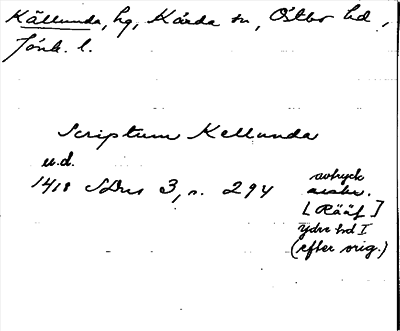 Källunda, hg, Kärda sn, Östbo hd,
Jönk. l.
Scriptum Kellunda
u.d.
1418 SDns 3, s. 294
avtryck
avskr.
[Rääf]
Ydre hd I
(efter orig.)